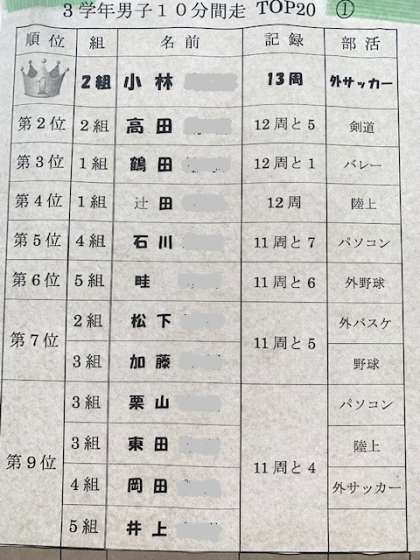 3学年男子10分間走 TOP20 ①
順位 組 名前 記録 部活
1 2組 小林 13周 外サッカー
第2位 2組 高田 12周と5 剣道
第3位 1組 鶴田 12周と1 バレー
第4位 1組 辻田 12周 陸上
第5位 4組 石川 11周と7 パソコン
第6位 5組 畦 11周と6 外野球
第7位 2組 松下 11周と5 外バスケ
3組 加藤 野球
第9位 3組 栗山 11周と4 パソコン
3組 東田 陸上
4組 岡田 外サッカー
5組 井上